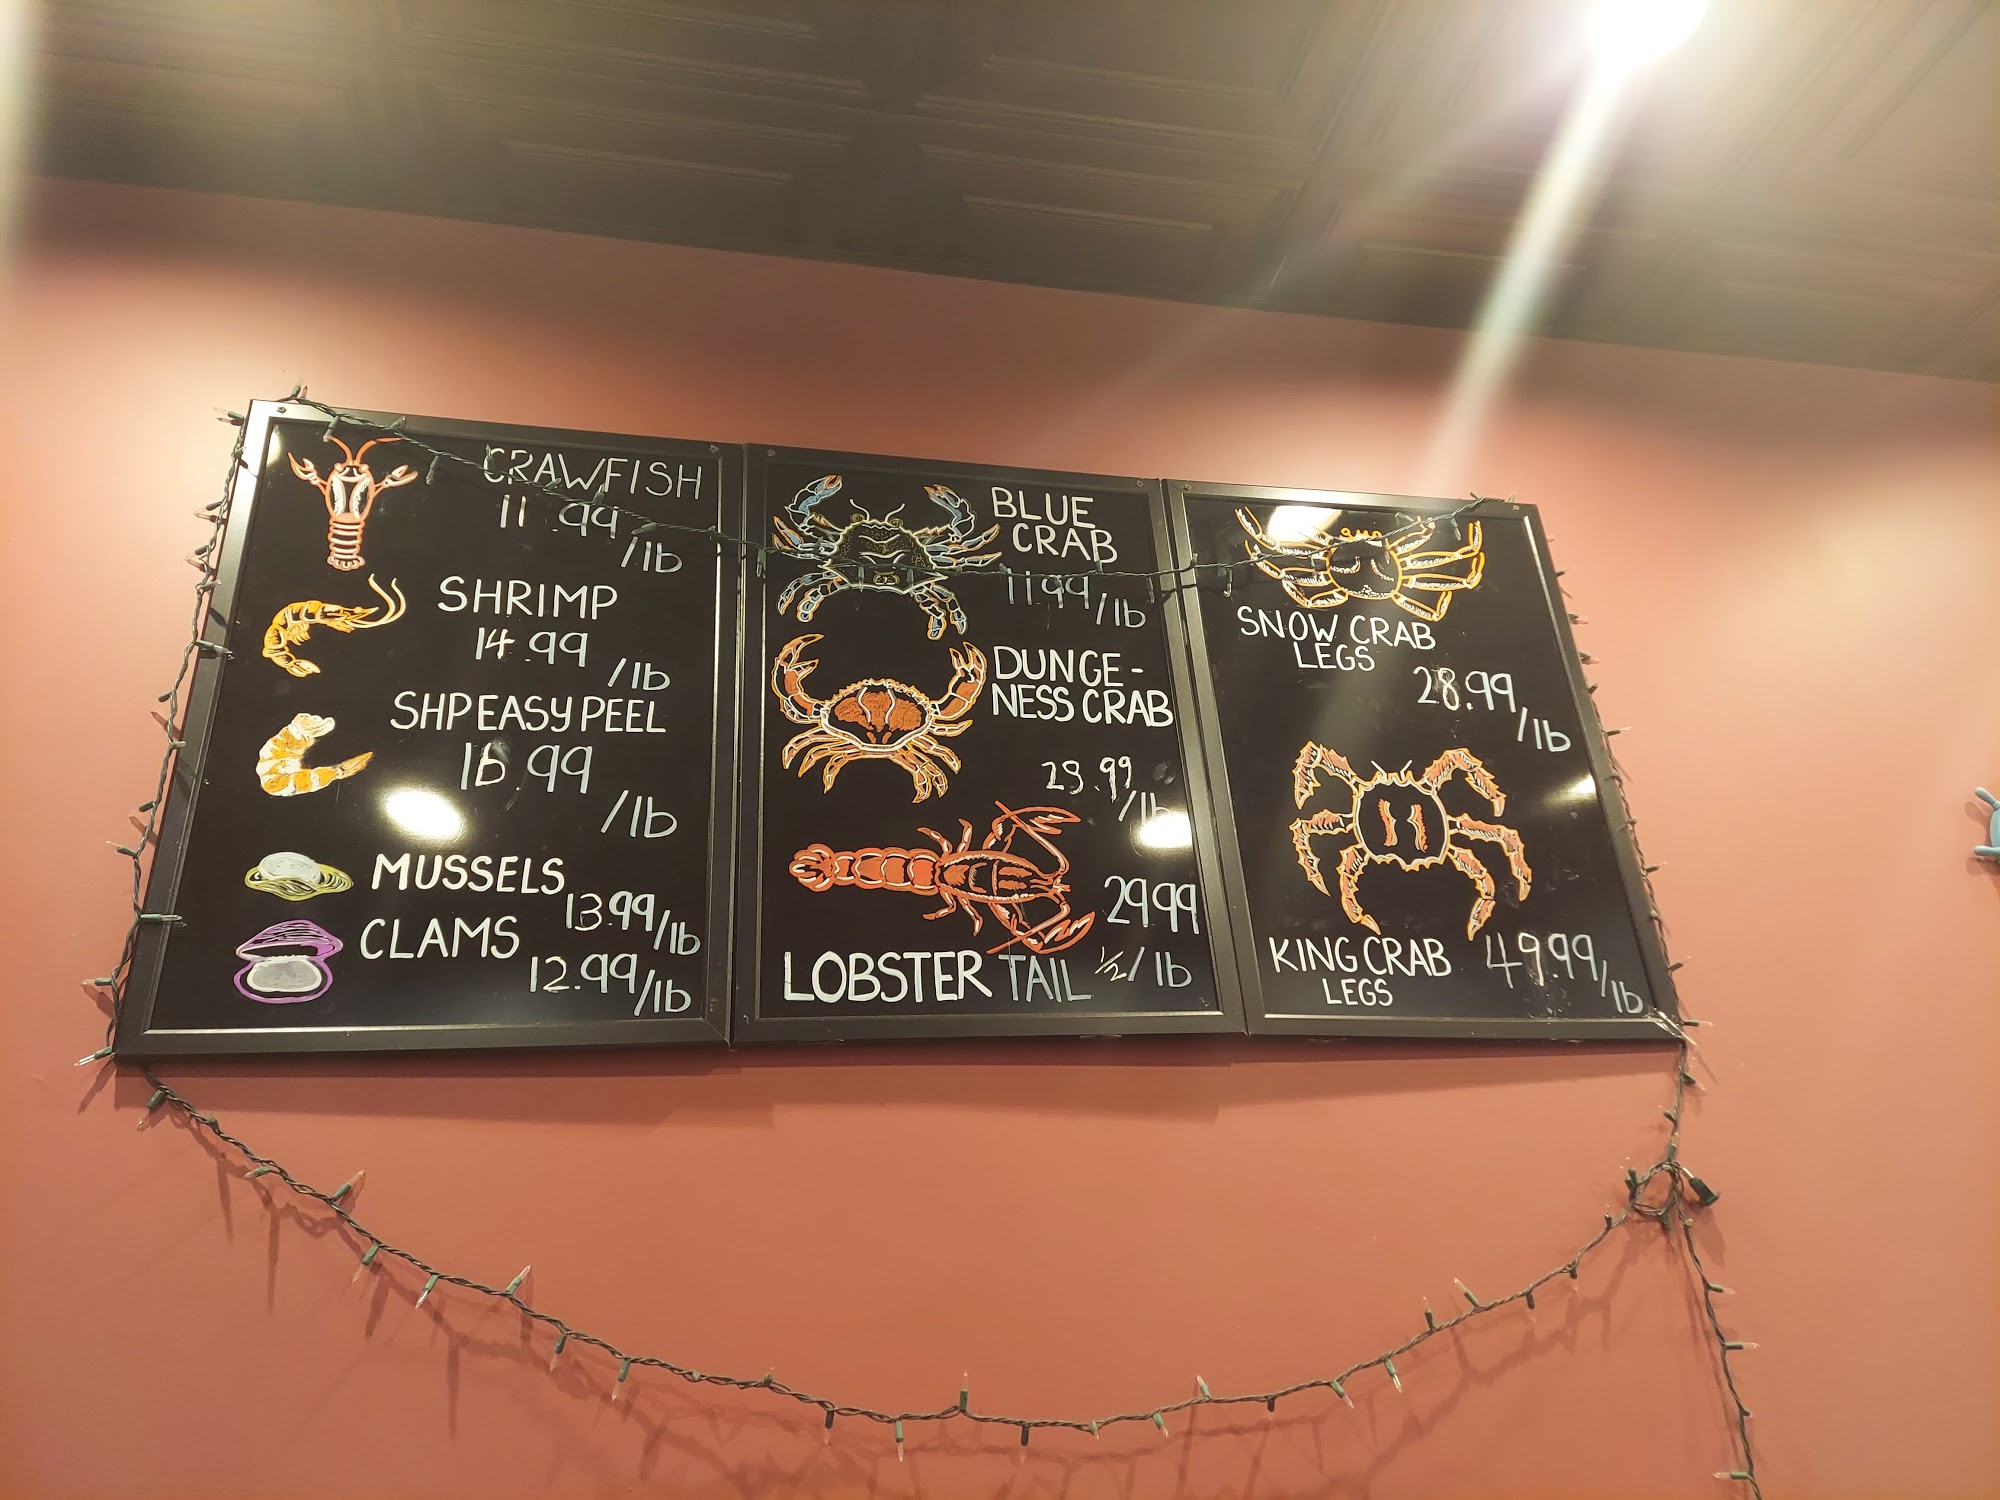 CRAWFISH
11.99
/lb
SHRIMP
14.99
/lb
SHP EASY PEEL
16.99
/lb
MUSSELS
13.99/lb
CLAMS
12.99/lb
BLUE
CRAB
11.99/lb
DUNGE-
NESS CRAB
28.99
/lb
29.99
1/2/lb
LOBSTER TAIL
SNOW CRAB
LEGS
28.99
/lb
KING CRAB
LEGS
49.99/lb